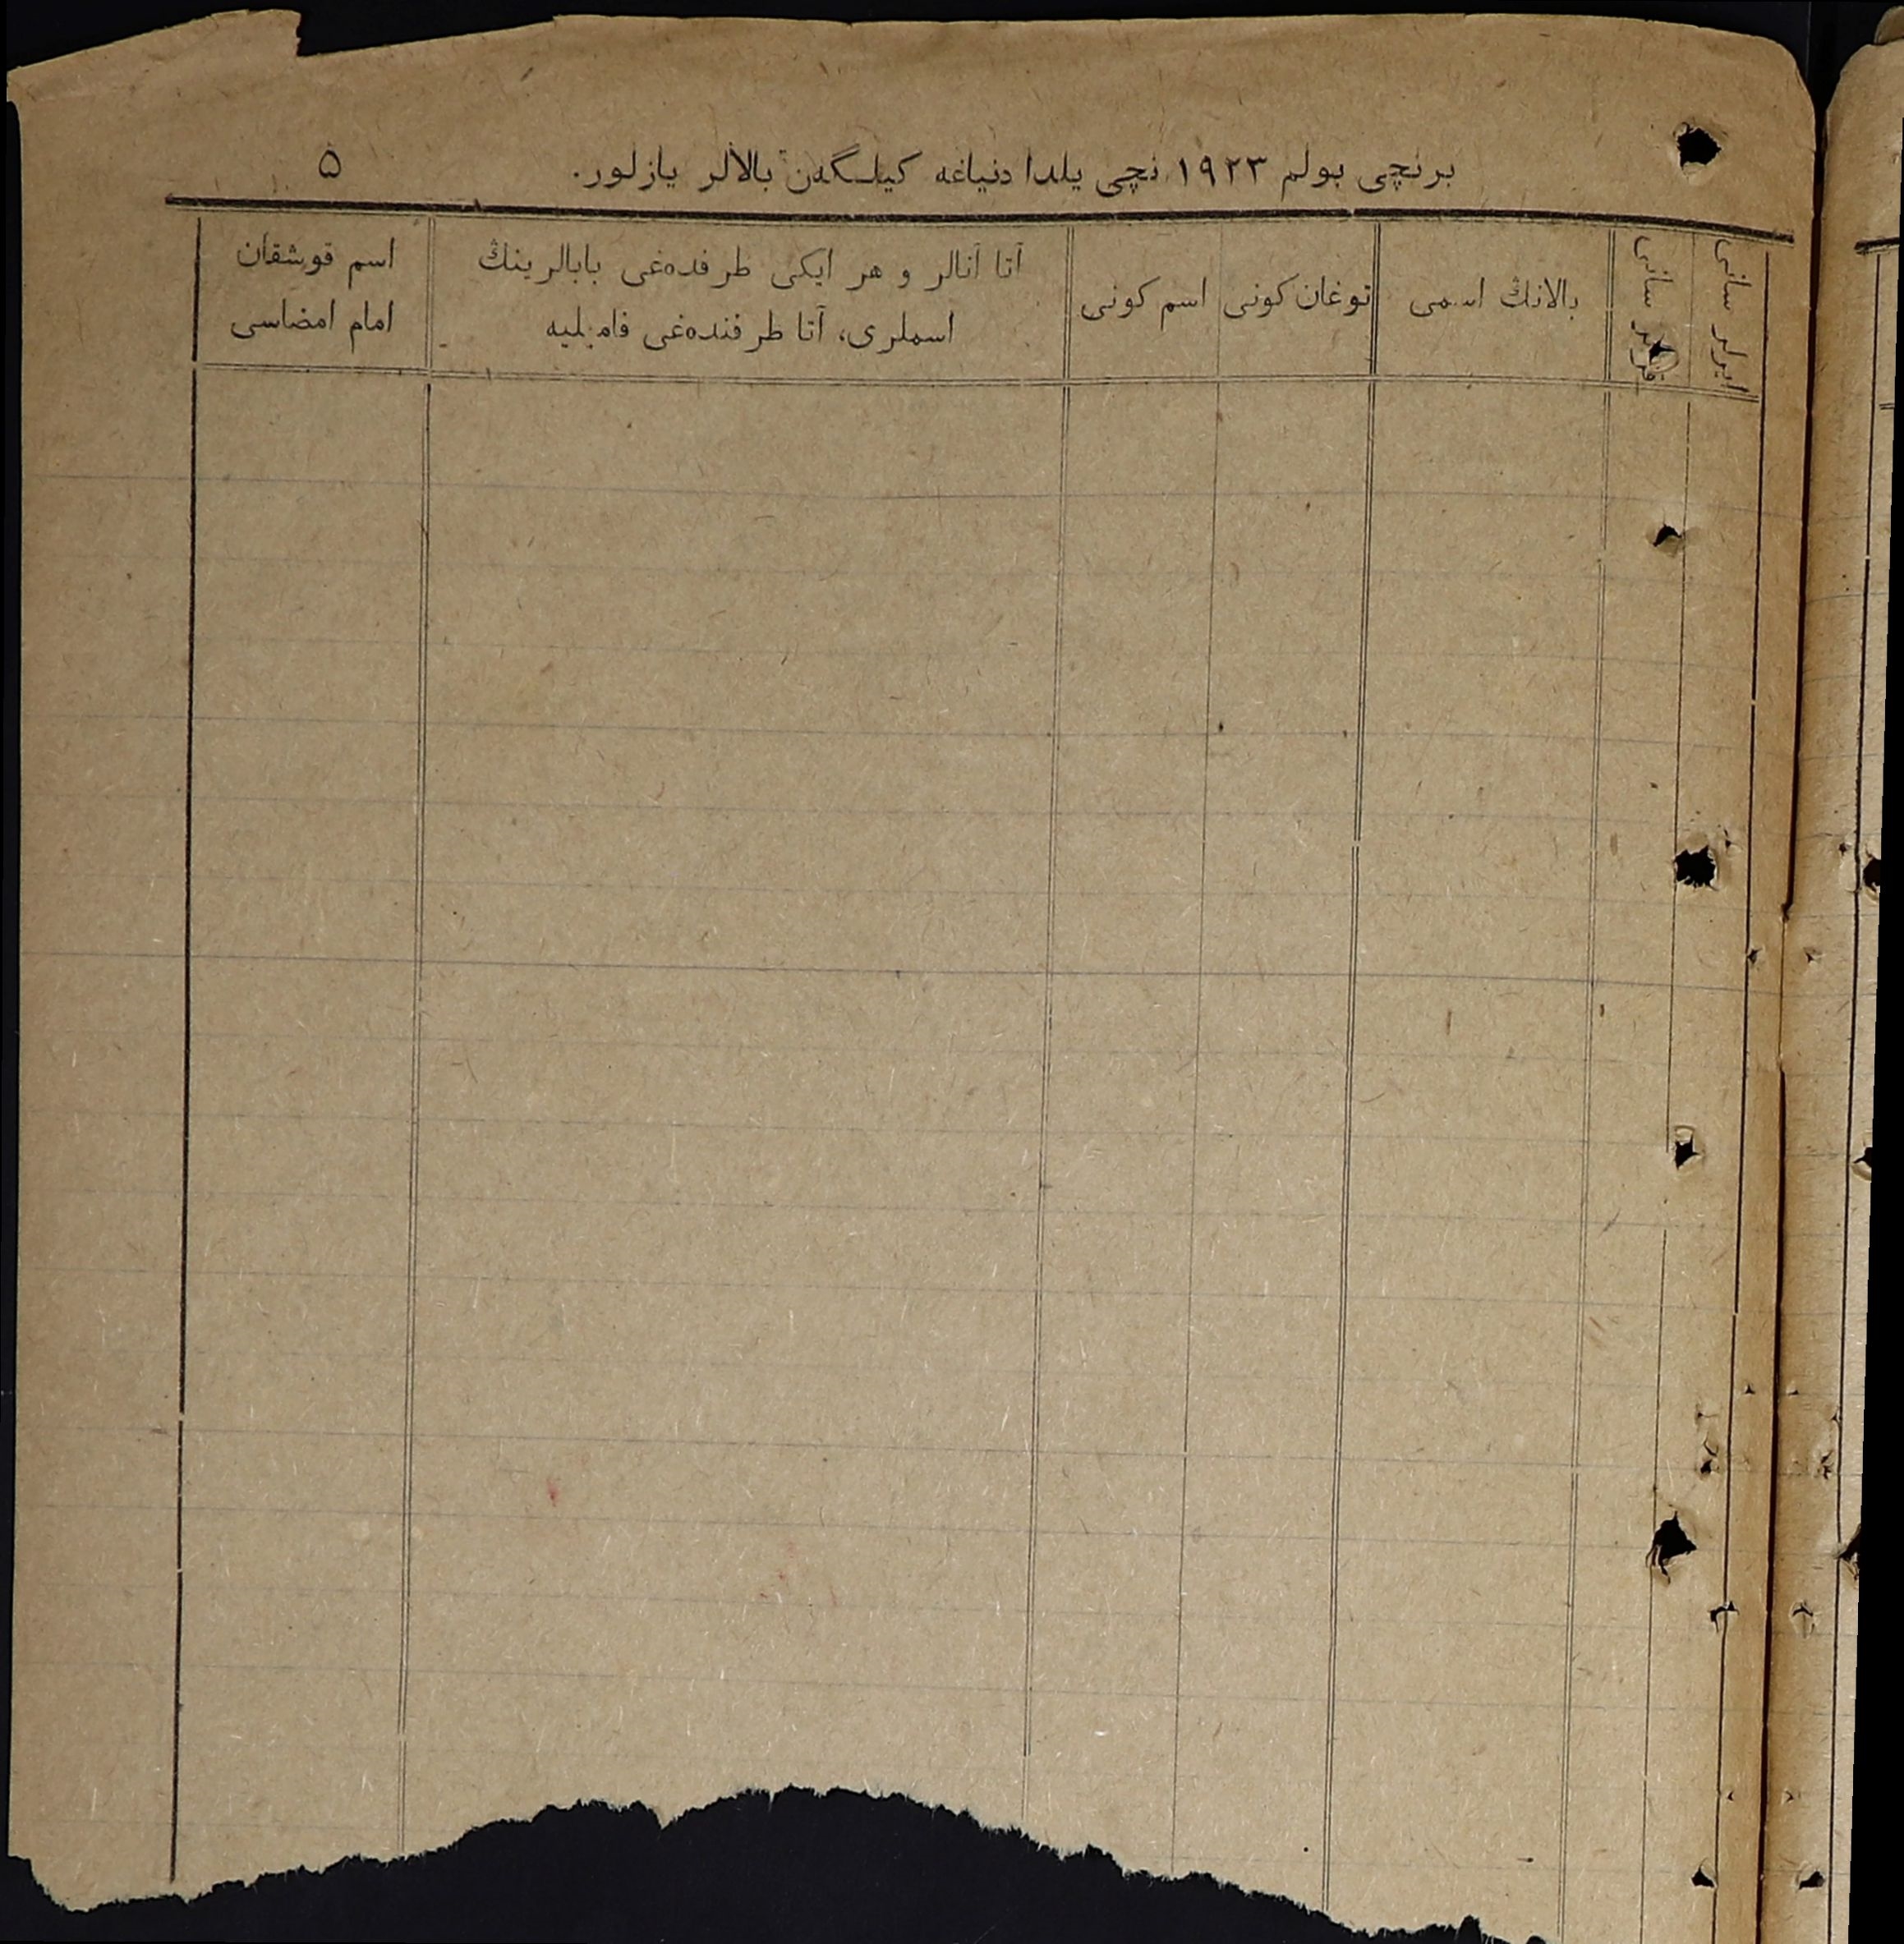 برنچی بولم ۱۹۲۳ نچی یلدا دنیاغه کیلـگەن بالالر یازلور.
۵
ایرلر سانی
سانی
بالانڭ اسمی
توغان کونی
اسم کونی
آتا آنالر و هر ایکی طرفدەغی بابالرینڭ
اسملری، آتا طرفندەغی فامیلیه
اسم قوشقان
امام امضاسی